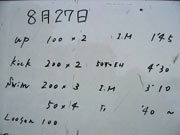 8月27日
up 100×2 I.M 1'45
Kick 200×2 4'30
Swim 200×3 I.M 3'10
50×4 Fr '40~
Loosen 100